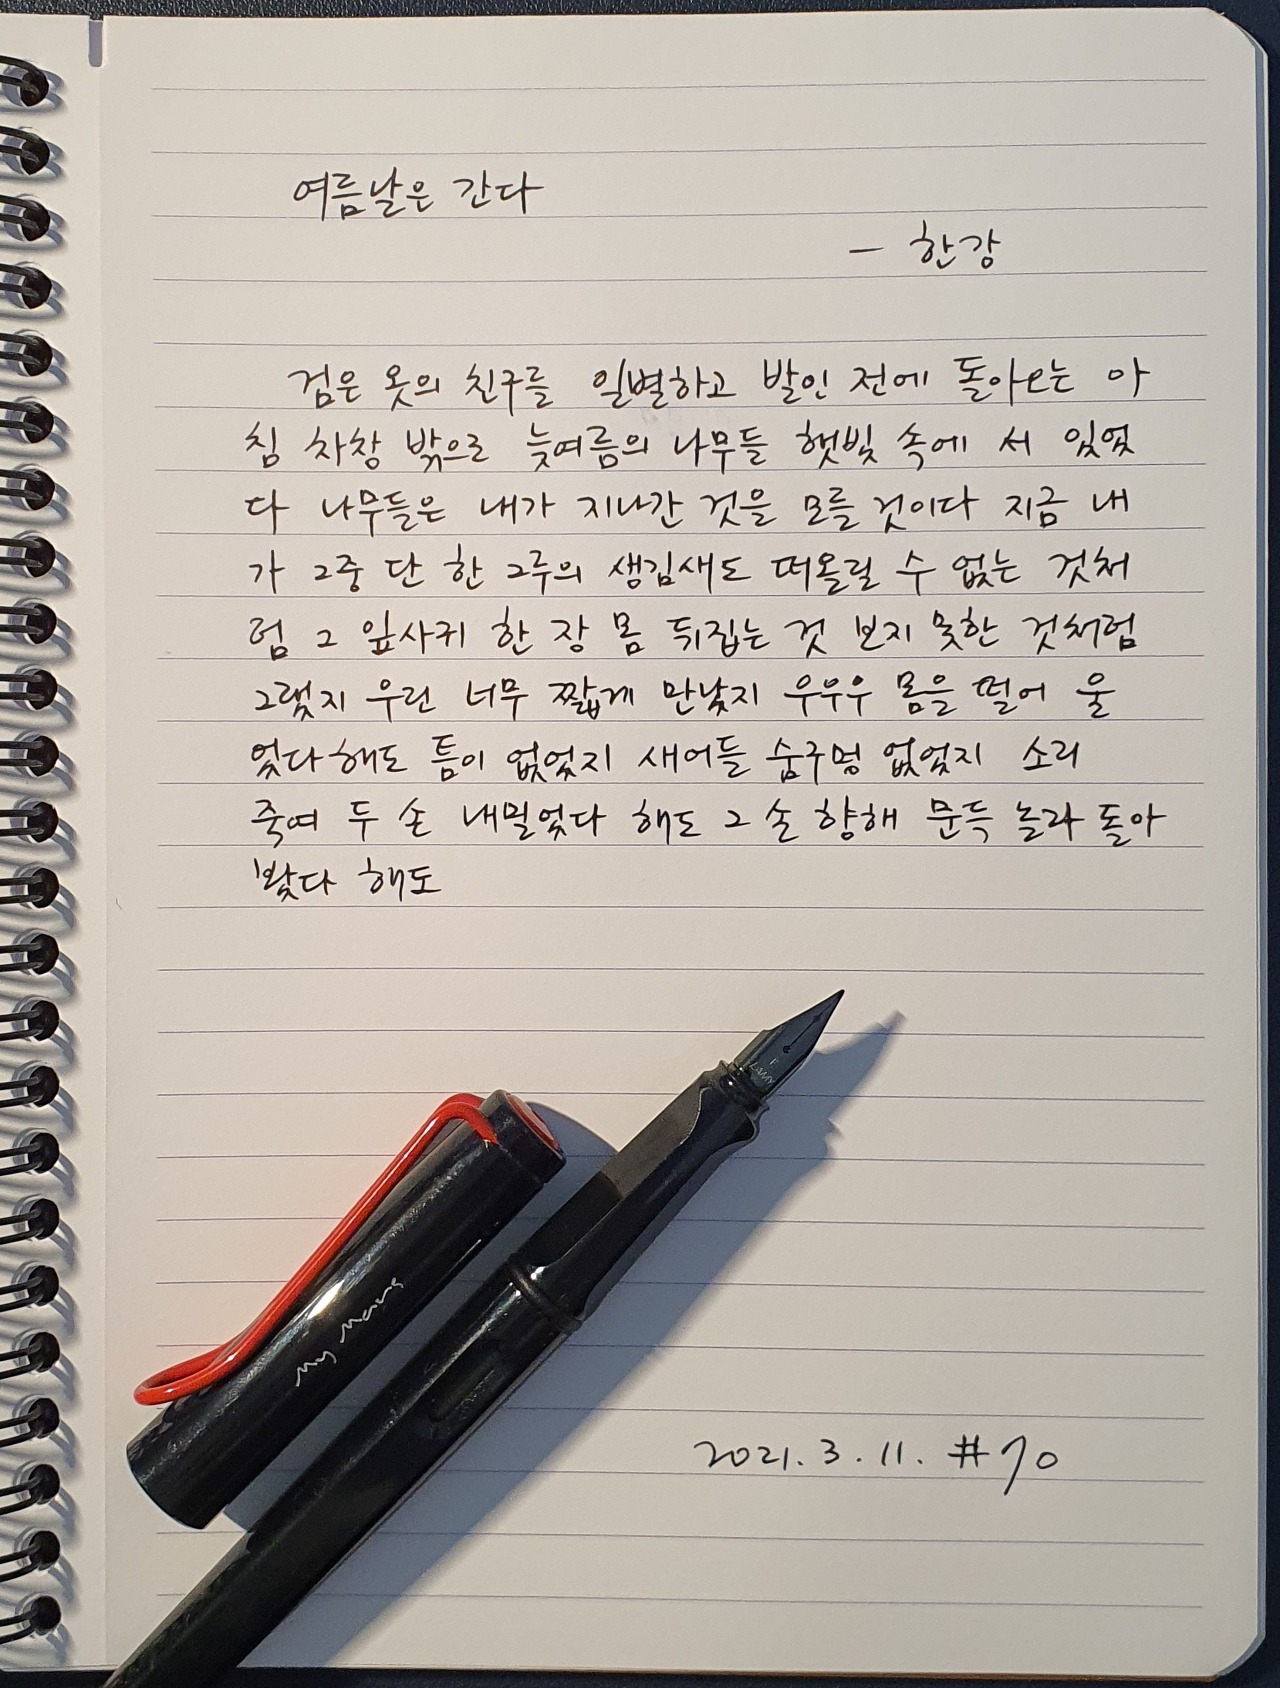 여름날은 간다
- 한강
검은 옷의 친구를 일별하고 발인 전에 돌아오는 아
침 차창 밖으로 늦여름의 나무들 햇빛 속에 서 있었
다 나무들은 내가 지나간 것을 모를 것이다 지금 내
가 그중 단 한 그루의 생김새도 떠올릴 수 없는 것처
럼 그 잎사귀 한 장 몸 뒤집는 것 보지 못한 것처럼
그랬지 우린 너무 짧게 만났지 우우우 몸을 떨어 울
었다 해도 틈이 없었지 새어들 숨구멍 없었지 소리
죽여 두 손 내밀었다 해도 그 손 향해 문득 놀라 돌아
봤다 해도
F
LAMY
My Mars
2021. 3. 11. #70